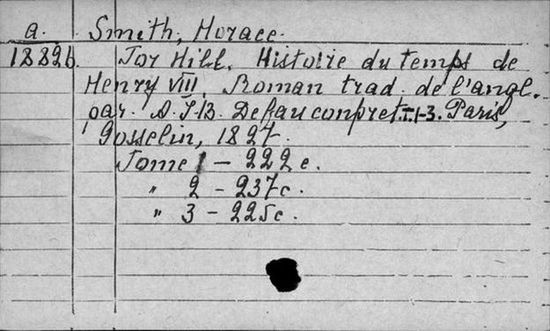 a. Smith, Horace.
18826 Tor Hill. Histoire du temps de
Henry VIII. Roman trad. de l'angl.
par. A. J. B. Defauconpret. T. 1-3. Paris,
Gosselin, 1827.
Tome 1 – 222 c.
" 2 – 237 c.
" 3 – 225 c.